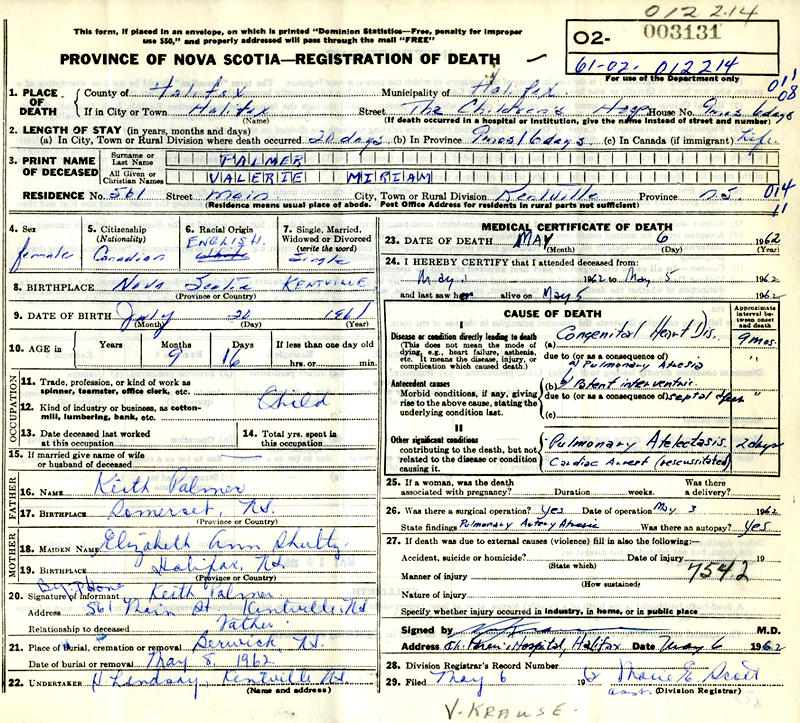 012214
This form, if placed in an envelope, on which is printed "Dominion Statistics—Free, penalty for improper
use $50," and properly addressed will pass through the mail "FREE"
02- 003131
61-02. 012214
For use of the Department only
PROVINCE OF NOVA SCOTIA—REGISTRATION OF DEATH
011
08
1. PLACE OF DEATH County of Halifax Municipality of Halifax
If in City or Town Halifax Street The Children's Hosp House No. 9mos 16days
(Name) (If death occurred in a hospital or institution, give the name instead of street and number)
2. LENGTH OF STAY (in years, months and days)
(a) In City, Town or Rural Division where death occurred 20 days (b) In Province 9mos/16days (c) In Canada (if immigrant) Life
3. PRINT NAME OF DECEASED Surname or Last Name PALMER
All Given or Christian Names VALERIE MIRIAM
RESIDENCE No. 561 Street Main City, Town or Rural Division Kentville Province NS 014
11
(Residence means usual place of abode. Post Office Address for residents in rural parts not sufficient)
4. Sex 5. Citizenship (Nationality) 6. Racial Origin 7. Single, Married, Widowed or Divorced (write the word)
female Canadian ENGLISH. Single
8. BIRTHPLACE Nova Scotia KENTVILLE
(Province or Country)
9. DATE OF BIRTH July 20 1961
(Month) (Day) (Year)
10. AGE in Years Months Days If less than one day old
9 16 hrs. or min.
OCCUPATION
11. Trade, profession, or kind of work as spinner, teamster, office clerk, etc.
12. Kind of industry or business, as cotton-mill, lumbering, bank, etc. Child
13. Date deceased last worked at this occupation 14. Total yrs. spent in this occupation
15. If married give name of wife or husband of deceased
FATHER
16. NAME Keith Palmer
17. BIRTHPLACE Somerset, N.S.
(Province or Country)
MOTHER
18. MAIDEN NAME Elizabeth Ann
19. BIRTHPLACE Halifax, N.S.
(Province or Country)
By: Phone
20. Signature of Informant Keith Palmer
Address 561 Main St. Kentville, N.S
Relationship to deceased Father.
21. Place of Burial, cremation or removal Berwick, N.S.
Date of burial or removal May 8, 1962
22. UNDERTAKER H Lindsay, Kentville N.S.
(Name and address)
MEDICAL CERTIFICATE OF DEATH
23. DATE OF DEATH MAY 6 1962
(Month) (Day) (Year)
24. I HEREBY CERTIFY that I attended deceased from:
May 1 1962 to May 5 1962
and last saw her alive on May 5 1962
CAUSE OF DEATH Approximate interval between onset and death
I
Disease or condition directly leading to death (a) Congenital Heart Dis. 9 mos.
(This does not mean the mode of dying, e.g., heart failure, asthenia, etc. It means the disease, injury, or complication which caused death.)
due to (or as a consequence of)
Pulmonary Atresia "
Antecedent causes (b) Patent interventric.
Morbid conditions, if any, giving rise to the above cause, stating the underlying condition last.
due to (or as a consequence of) septal "
(c)
II
Other significant conditions contributing to the death, but not related to the disease or condition causing it.
Pulmonary Atelectasis. 2 days
Cardiac Arrest (rescussitated)
25. If a woman, was the death associated with pregnancy? Duration weeks. Was there a delivery?
26. Was there a surgical operation? yes Date of operation May 3 1962
State findings Pulmonary Artery Atresia Was there an autopsy? yes
27. If death was due to external causes (violence) fill in also the following:—
Accident, suicide or homicide? Date of injury 19
(State which)
Manner of injury 7542
(How sustained)
Nature of injury
Specify whether injury occurred in industry, in home, or in public place
Signed by M.D.
Address Hospital, Halifax Date May 6 1962
28. Division Registrar's Record Number
29. Filed May 6 196 Scott
(Division Registrar)
V. KRAUSE.